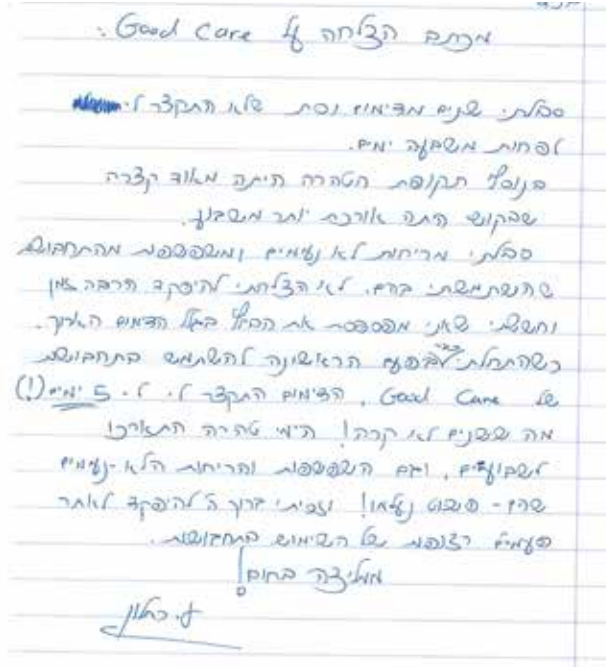 מכתב הצלחה על Good Care :
סבלתי שנים מדימום וסת שלא התקצר לי
לפחות משבעה ימים.
בנוסף תקופת הטהרה היתה מאוד קצרה
שבקושי היתה אורכת יותר משבוע.
סבלתי מריחות לא נעימים ומשפשפת מהתחבושות
שהשתמשתי בהם. לא הצלחתי להיפקד הרבה זמן
וחששתי שאני מפספסת את הביוץ בגלל הדימום הארוך.
כשהתחלתי כבר בפעם הראשונה להשתמש בתחבושות
של Good Care, הדימום התקצר לי ל-5 ימים(!)
מה ששנים לא קרה! הימי טהרה התארכו
לשבועיים, וגם השפשפת והריחות הלא-נעימים
שהיו - פשוט נעלמו! וזכיתי ברוך ה' להיפקד לאחר
פעמיים רצופות של השימוש בתחבושות.
ממליצה בחום!